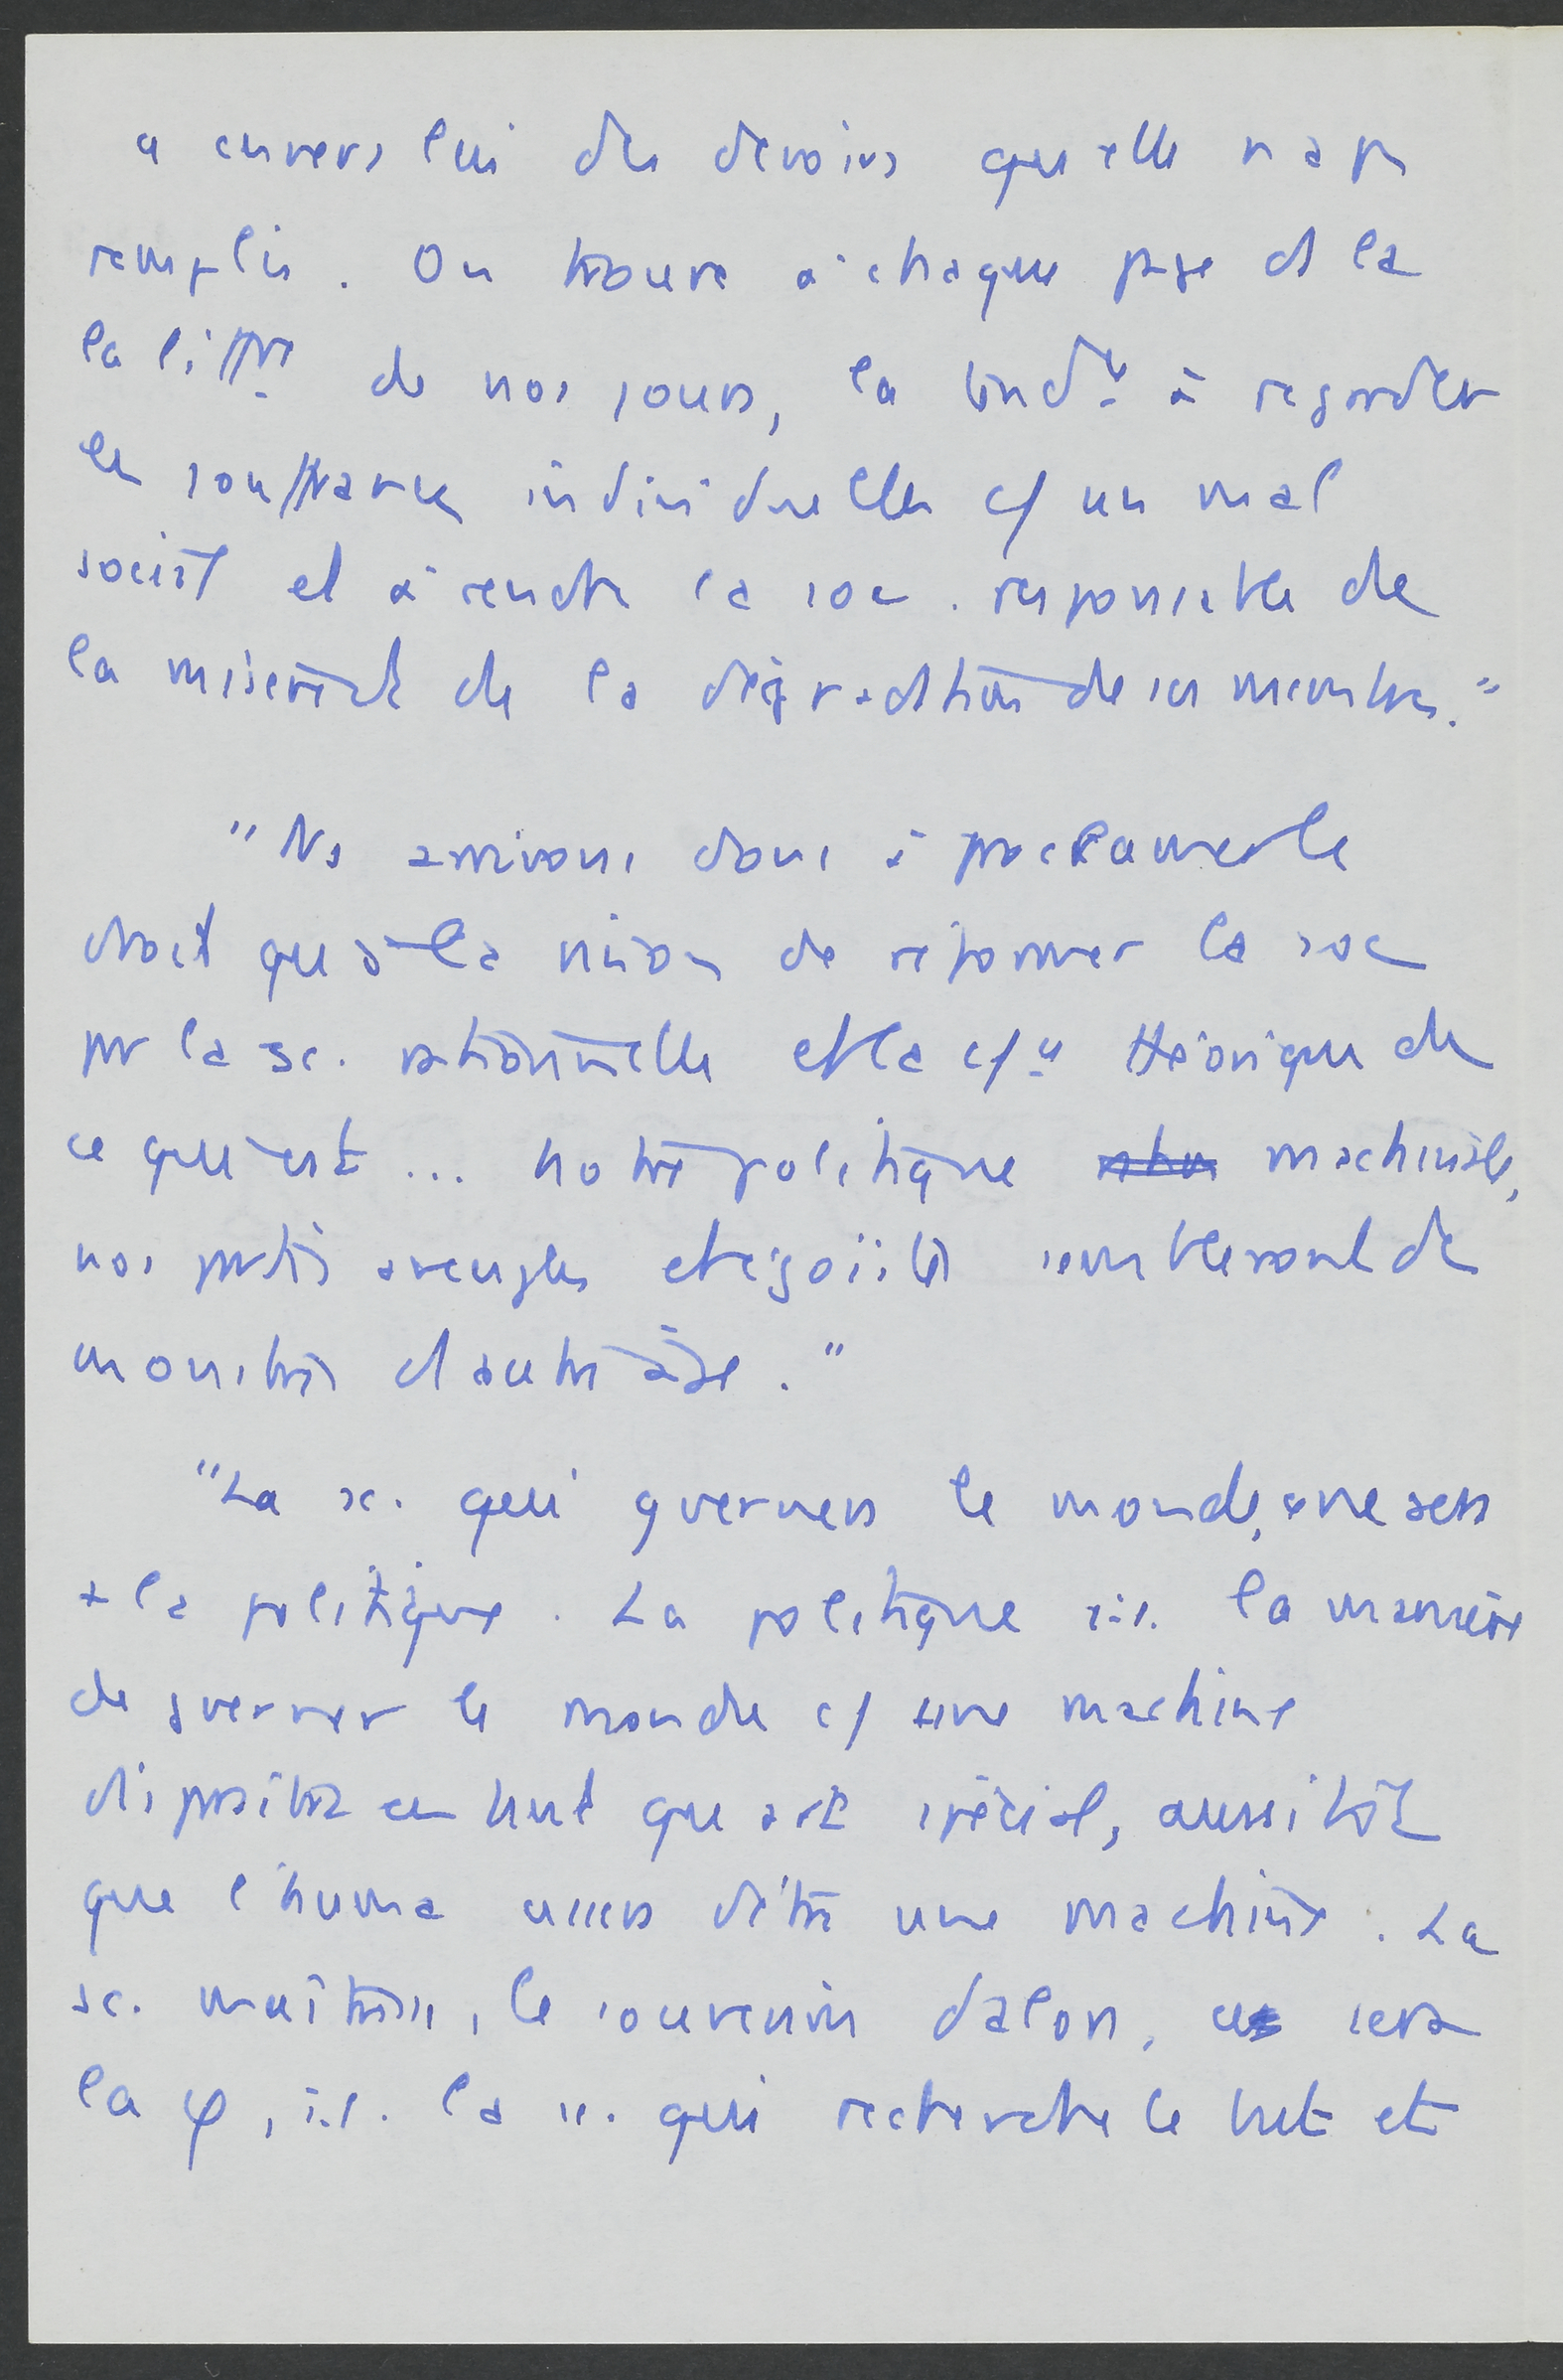 a envers lui des devoirs qu'elle n'a pas
remplis. On trouve à chaque page de la
la littre de nos jours, la tendce à regarder
les souffrances individuelles c/ un mal
social et à rendre la soc. responsable de
la misère et de la dégradation de ses membres."
"Ns arrivons donc à proclamer le
droit qu'a la raison de réformer la soc
par la sc. rationnelle et la c/ce théorique de
ce qui est... notre politique machinale,
nos partis aveugles et égoïstes sembleront des
monstres d'autre âge."
"La sc. qui gvernera le monde, ce ne sera
+ la politique. La politique i.e. la manière
de gverner le monde c/ une machine
disparaîtra en tant qu'art spécial, aussitôt
que l'huma cessera d'être une machine. La
sc. maîtresse, le souverain d'alors, ce sera
la φ, i.e. la sc. qui recherche le but et